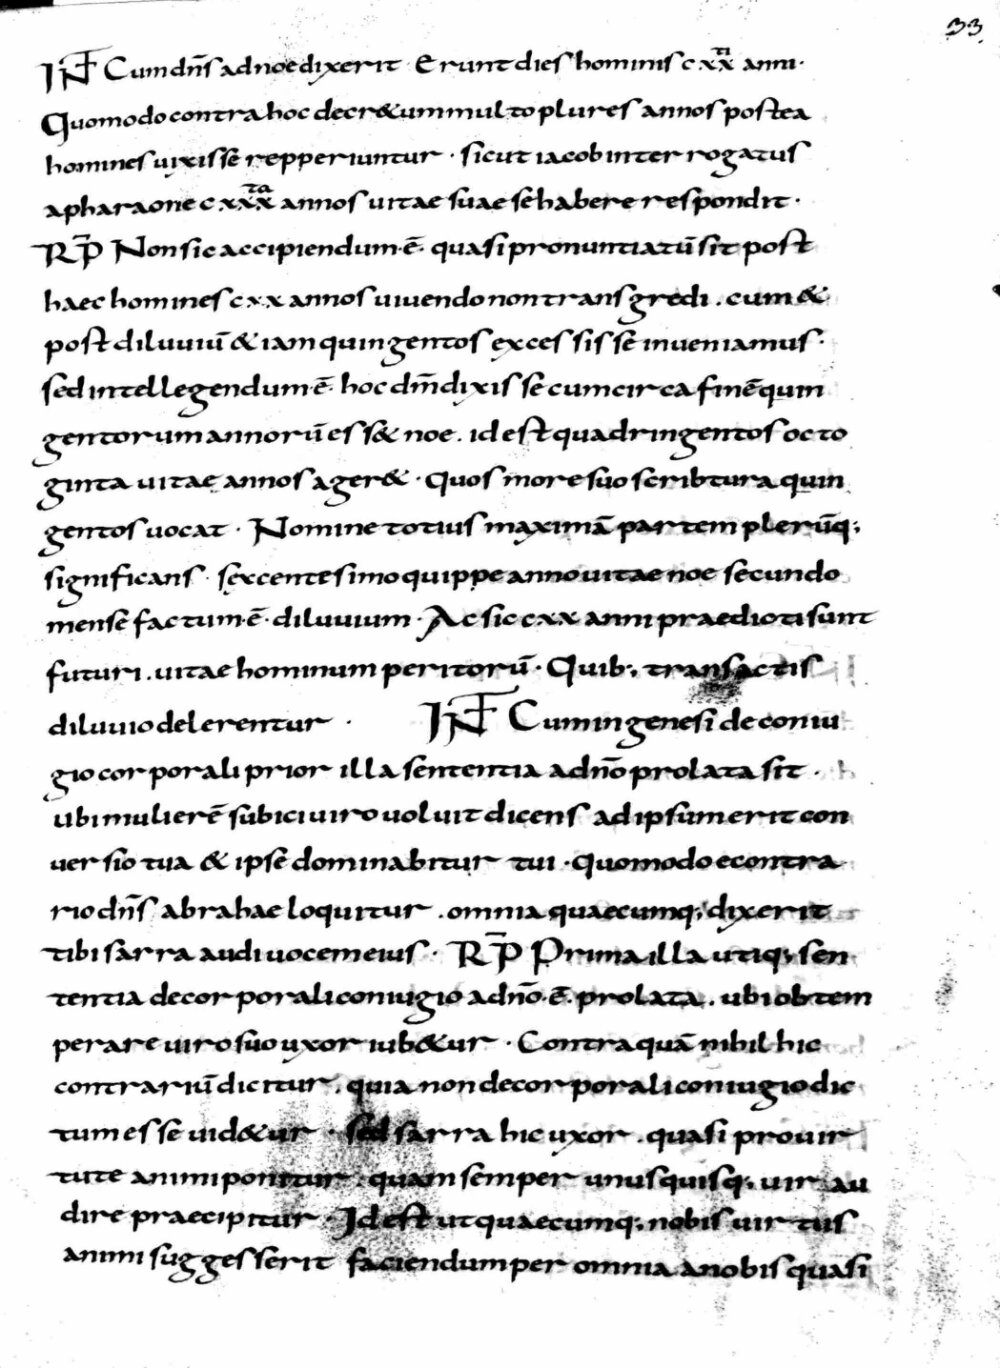 33
INT Cum dn̄s ad noe dixerit Erunt dies hominis cxx^ti anni·
Quomodo contra hoc decr&um multo plures annos postea
homines uixisse repperiuntur · sicut iacob interrogatus
a pharaone cxxx^ta annos uitae suae se habere respondit ·
RP̄ Non sic accipiendum·ē· quasi pronuntiatū sit post
haec homines cxx annos uiuendo non transgredi . cum &
post diluuiū & iam quingentos excessisse inueniamus·
sed intellegendum·ē· hoc dm̄ dixisse cum circa finē quin
gentorum annorū ess& noe . id est quadringentos octo
ginta uitae annos ager& · Quos more suo scribtura quin
gentos uocat · Nomine totius maximā partem plerūq;
significans · sexcentesimo quippe anno uitae noe secundo
mense factum·ē· diluuium · Ac sic cxx anni praedicti sunt
futuri . uitae hominum periturū · Quib; transactis
diluuio delerentur · INT Cum in genesi de coniu
gio corporali prior illa sententia a dn̄o prolata sit .
ubi mulierē subici uiro uoluit dicens ad ipsum erit con
uersio tua & ipse dominabitur tui · quomodo e contra
rio dn̄s abrahae loquitur . omnia quaecumq; dixerit
tibi sarra audi uocem eius · RP̄ Prima illa utiq; sen
tentia de corporali coniugio a dn̄o·ē· prolata . ubi obtem
perare uiro suo uxor iub&ur · Contra quā nihil hic
contrariū dicitur . quia non de corporali coniugio dic
tum esse uid&ur · sed sarra hic uxor . quasi pro uir
tute animi ponitur . quam semper unusquisq; uir au
dire praecipitur · Id est ut quaecumq; nobis uirtus
animi suggesserit faciendum per omnia a nobis quasi